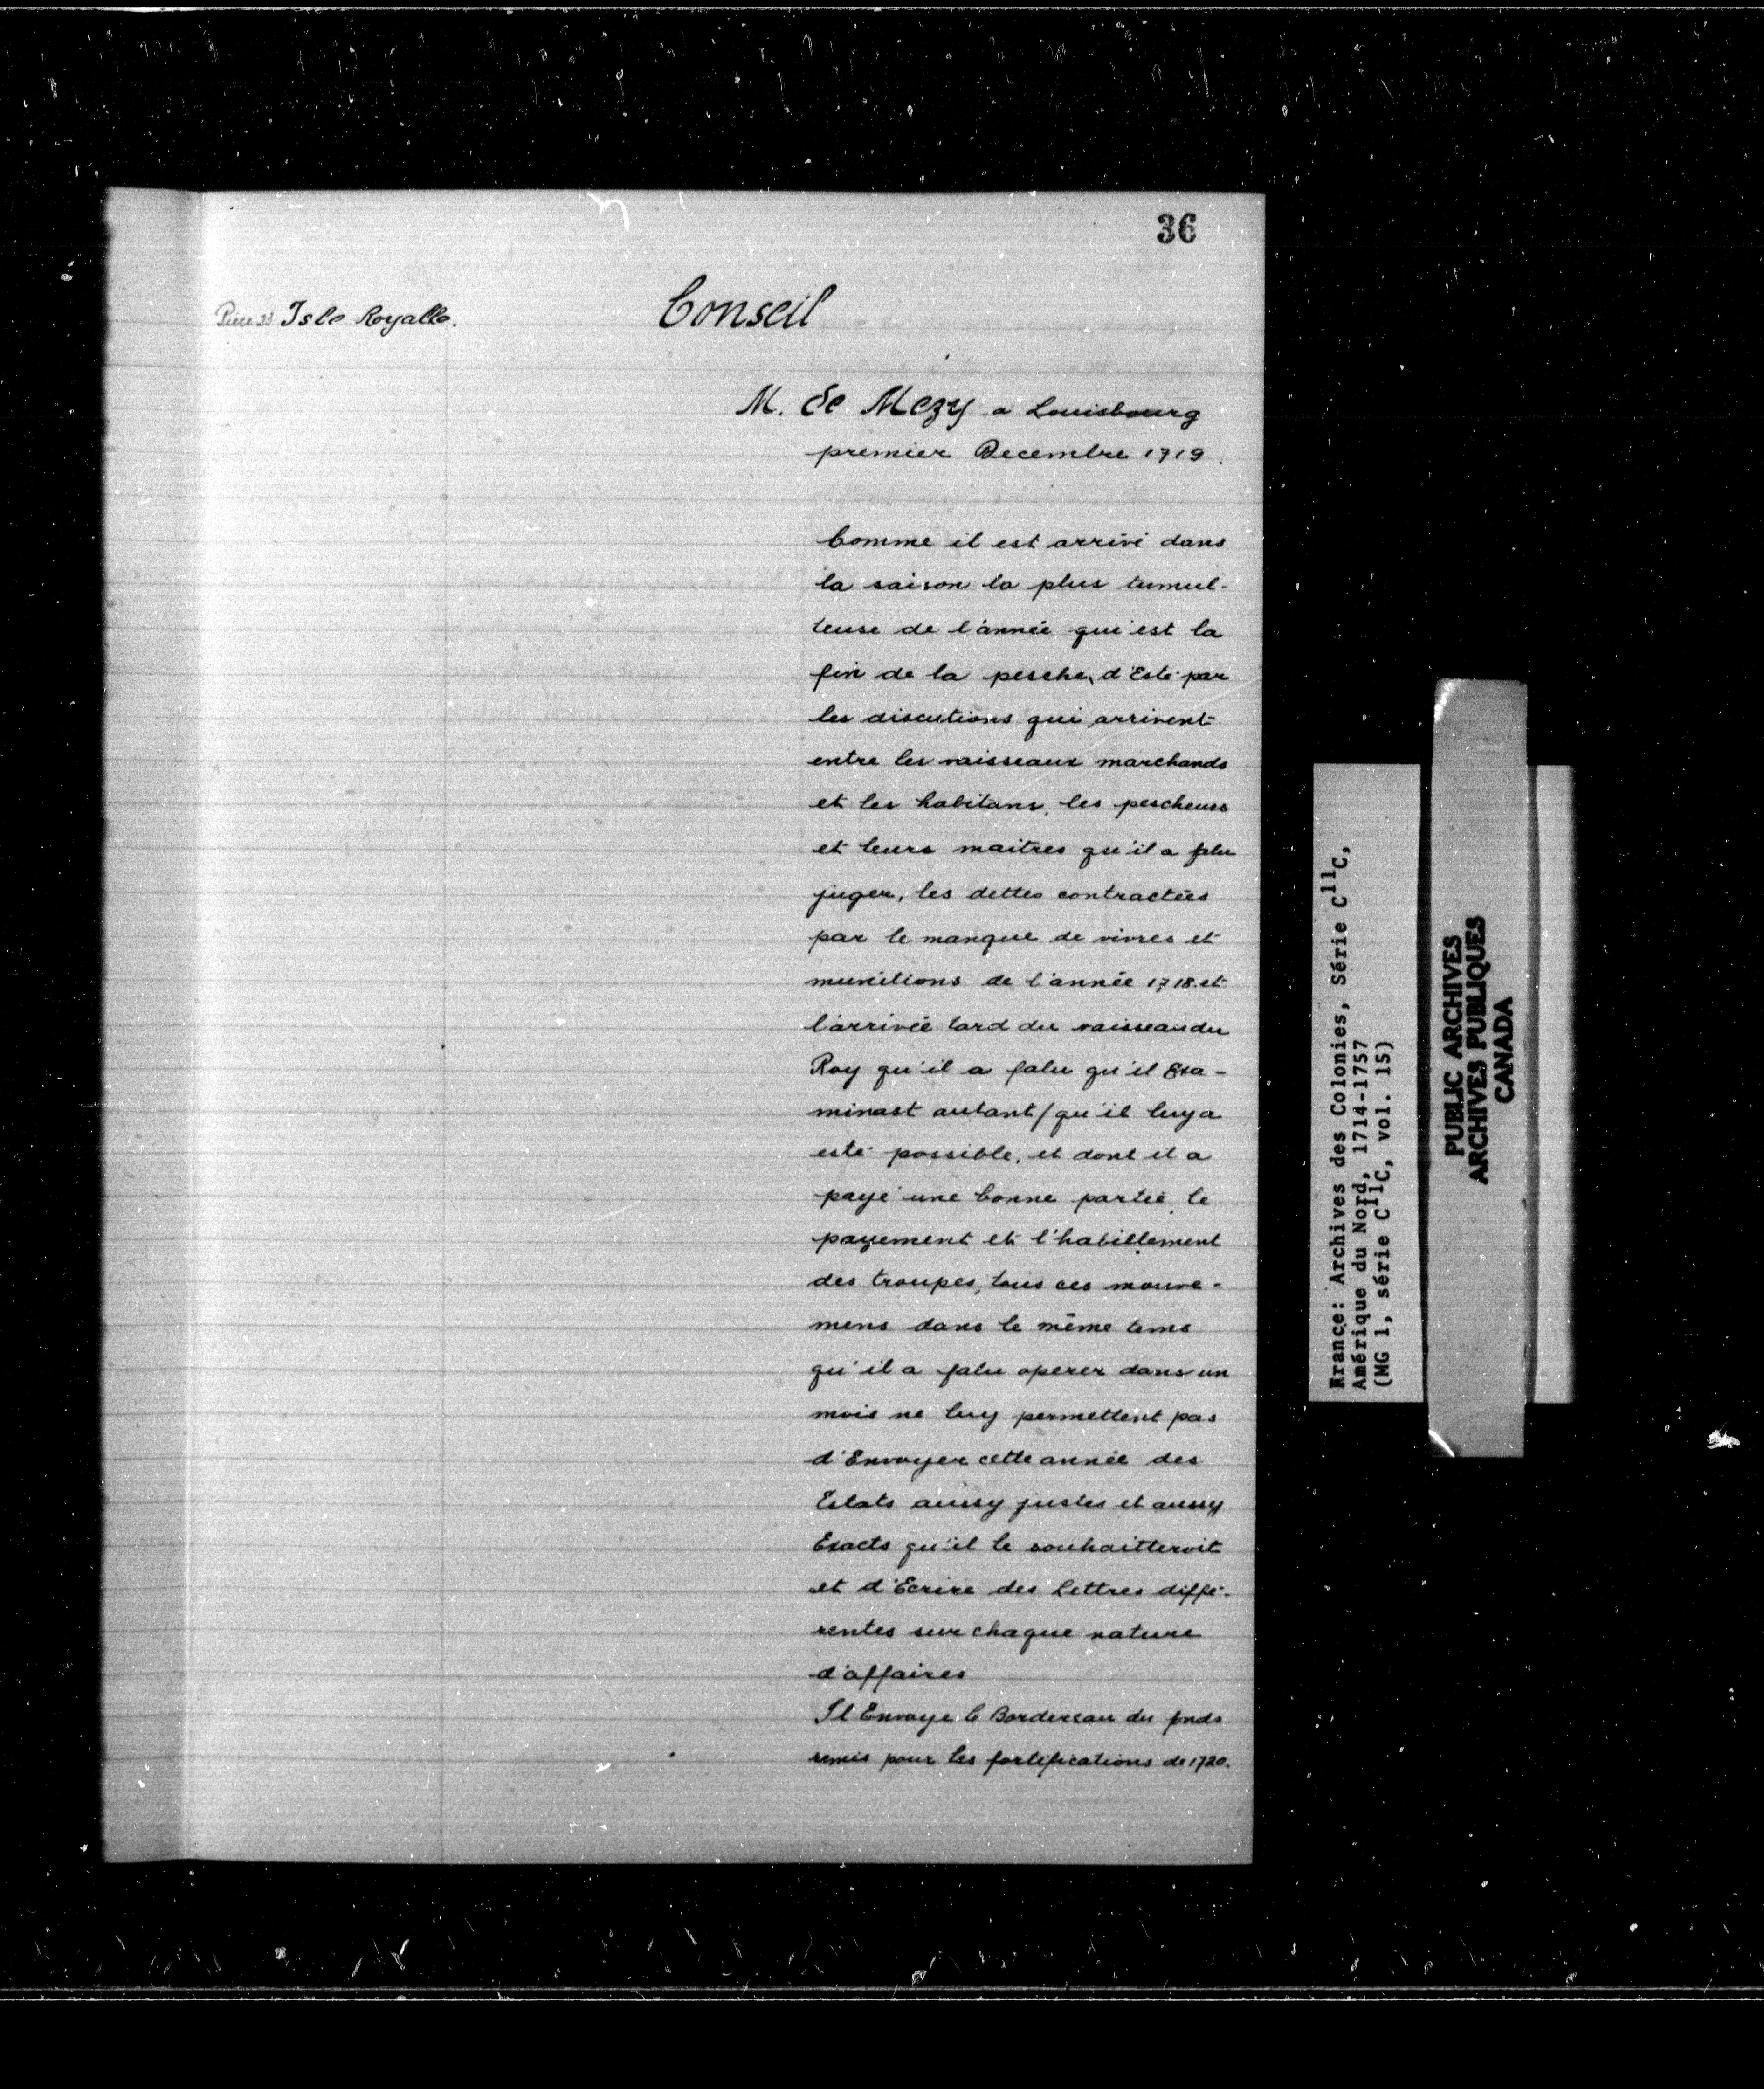 36
Piece 23 Isle Royalle.
Conseil
M. de Mezy a Louisbourg
premier Decembre 1719.
Comme il est arrivé dans
la saison la plus tumul-
teuse de l'année qui est la
fin de la pesche, d'Esté par
les discutions qui arrivent
entre les vaisseaux marchands
et les habitans, les pescheurs
et leurs maitres qu'il a falu
juger, les dettes contractées
par le manque de vivres et
munitions de l'année 1718. et
l'arrivée tard du vaisseau du
Roy qu'il a falu qu'il Exa-
minast autant/qu'il luy a
esté possible, et dont il a
payé une bonne partie, le
payement et l'habillement
des troupes, tous ces mouve-
mens dans le même tems
qu'il a falu operer dans un
mois ne luy permettent pas
d'Envoyer cette année des
Estats aussy justes et aussy
Exacts qu'il le souhaitteroit
et d'Ecrire des Lettres diffé-
rentes sur chaque nature
d'affaires
Il Envoye le Bordereau du fonds
remis pour les fortifications de 1720.
France: Archives des Colonies, Série C11C,
Amérique du Nord, 1714-1757
(MG 1, série C11C, vol. 15)
PUBLIC ARCHIVES
ARCHIVES PUBLIQUES
CANADA